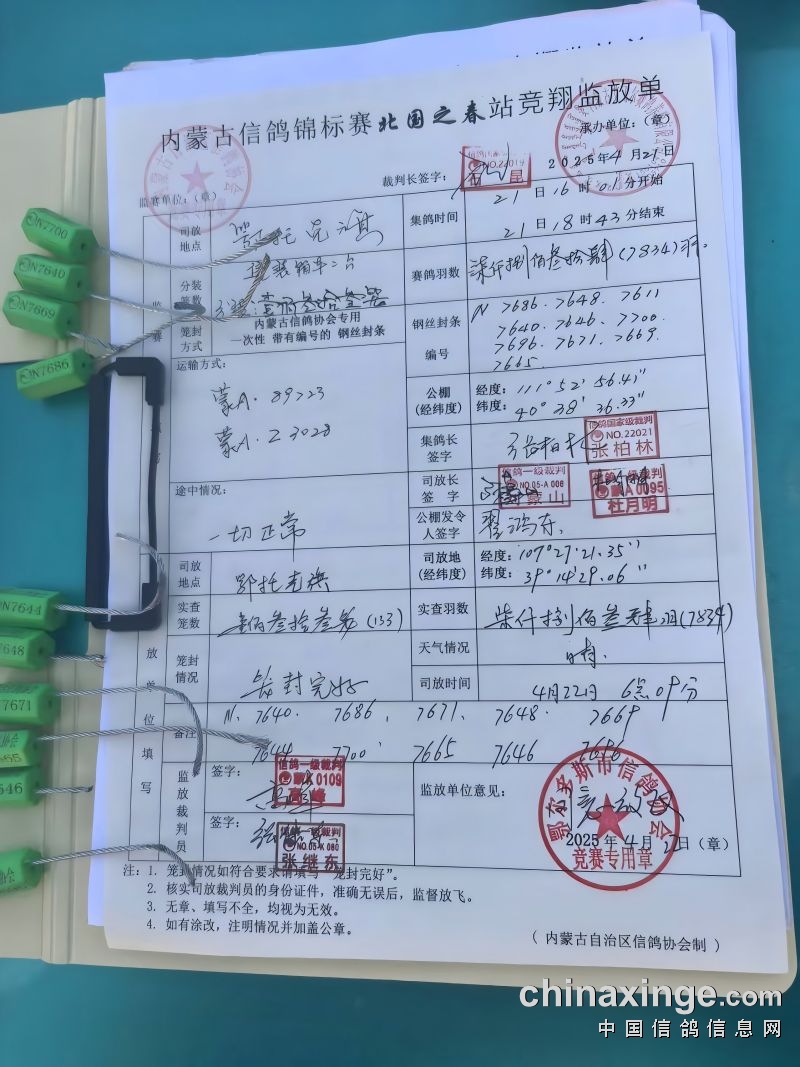 内蒙古信鸽锦标赛北国之春站竞翔监放单
监赛单位：（章）
裁判长签字：
承办单位：（章）
2025年4月21日
NO.22014
昆
司放地点
集鸽时间
21日16时01分开始
21日18时43分结束
分装笼数
赛鸽羽数
柒仟捌佰叁拾肆(7834)羽.
笼封方式
内蒙古信鸽协会专用
一次性 带有编号的 钢丝封条
钢丝封条编号
N 7686. 7648. 7611
7640. 7646. 7700.
7696. 7671. 7669.
7665.
运输方式：
蒙A. 89723
蒙A. Z3028
公棚(经纬度)
经度：111°52′56.41″
纬度：40°38′36.33″
集鸽长签字
张柏林
信鸽国家级裁判
NO.22021
张柏林
途中情况：
一切正常
司放长签字
信鸽一级裁判
NO.05-A 006
蒙山
信鸽一级裁判
蒙A 0095
杜月明
公棚发令人签字
翟鸿东.
司放地点
鄂托克旗
司放地(经纬度)
经度：107°27′21.35″
纬度：39°14′29.06″
实查笼数
壹佰叁拾叁笼(133)
实查羽数
柒仟捌佰叁拾肆羽(7834)
笼封情况
笼封完好
天气情况
晴.
司放时间
4月22日 6点09分
放单位填写
备注
N. 7640. 7686. 7671. 7648. 7669
7644 7700 7665 7646 7696
监放裁判员
签字：
信鸽一级裁判
蒙A 0109
高峰
签字：
信鸽一级裁判
NO.05-K 080
张继东
监放单位意见：
鄂尔多斯市信鸽协会
竞赛专用章
2025年4月22日（章）
注：1. 笼封情况如符合要求请填写“笼封完好”。
2. 核实司放裁判员的身份证件，准确无误后，监督放飞。
3. 无章、填写不全，均视为无效。
4. 如有涂改，注明情况并加盖公章。
（内蒙古自治区信鸽协会制）
N7700
N7640
N7669
N7686
N7644
7648
7671
665
546
chinaxinge.com
中国信鸽信息网